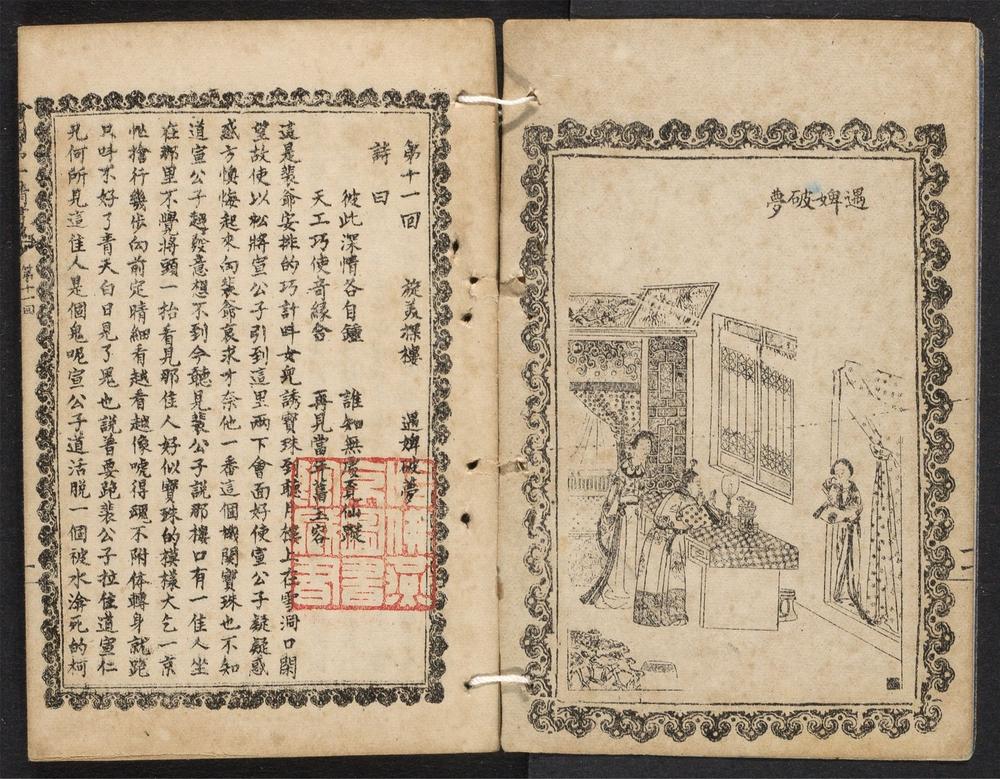 遇婢破夢
第十一回 旋美探樓 遇婢破夢
詩曰
彼此深情各自鍾 誰知無處覓仙蹤
天工巧使奇緣合 再見當年舊玉容
這是裴爺安排的巧計呌女兒誘寶珠到聽月樓上在雪洞口閑
望故使以松將宣公子引到這里兩下會面好使宣公子疑疑惑
惑方懊悔起來向裴爺哀求才奈他一番這個機関寶珠也不知
道宣公子越發意想不到今聽見裴公子說那樓口有一佳人坐
在那里不覺將頭一抬看見那佳人好似寶珠的模樣大乞一京
忙搶行幾步向前定睛細看越看越像唬得魂不附体轉身就跑
只呌不好了青天白日見了鬼也說着要跑裴公子拉住道宣仁
兄何所見這佳人是個鬼呢宣公子道活脫一個被水渰死的柯
第十一回